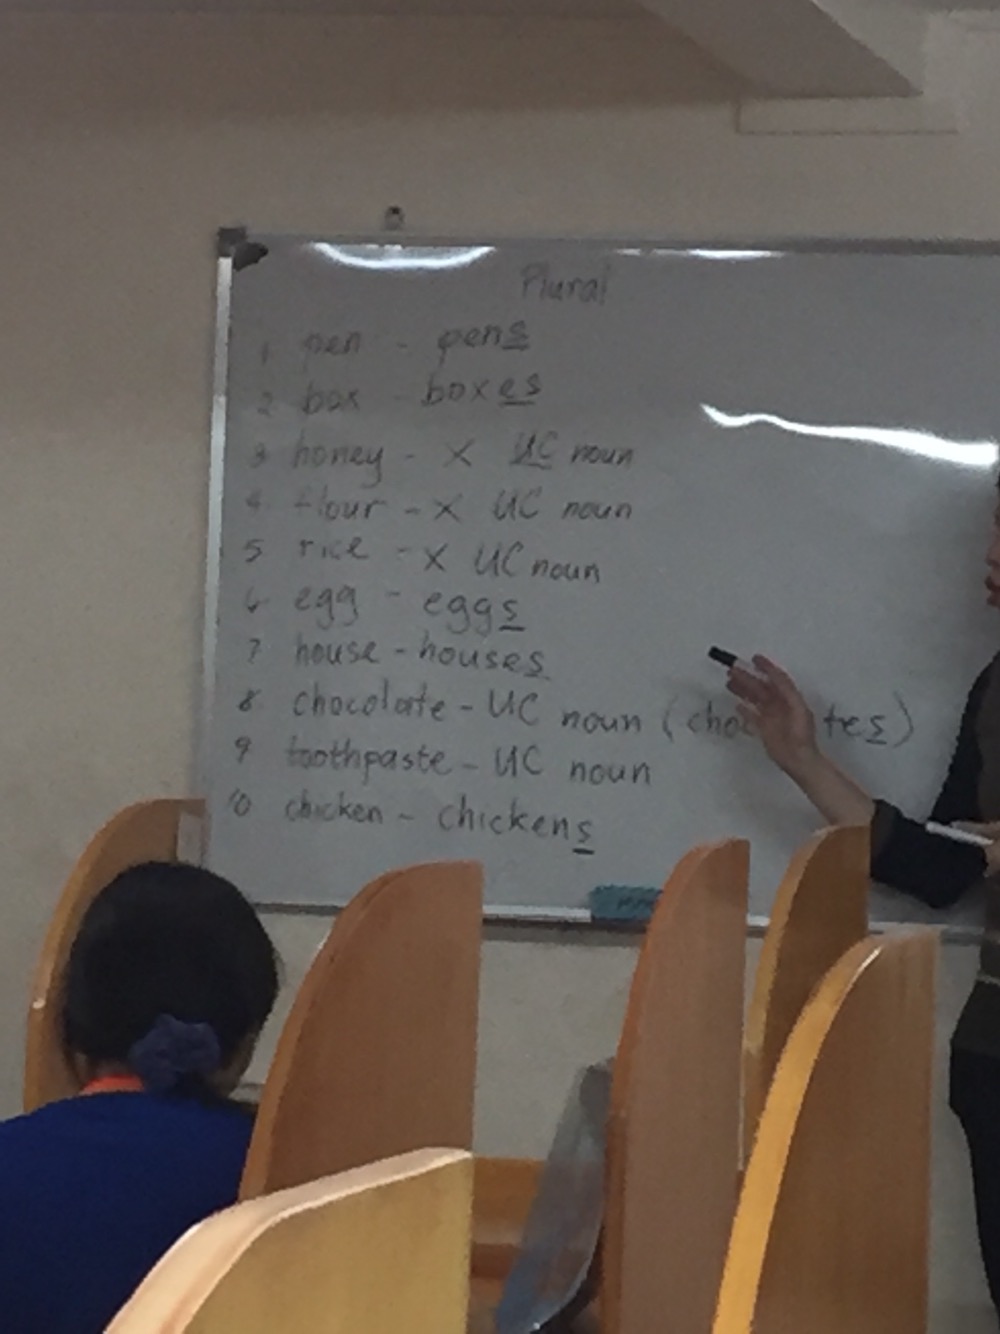 Plural
1 pen - pens
2 box - boxes
3 honey - X UC noun
4 flour - X UC noun
5 rice - X UC noun
6 egg - eggs
7 house - houses
8 chocolate - UC noun ( tes)
9 toothpaste - UC noun
10 chicken - chickens